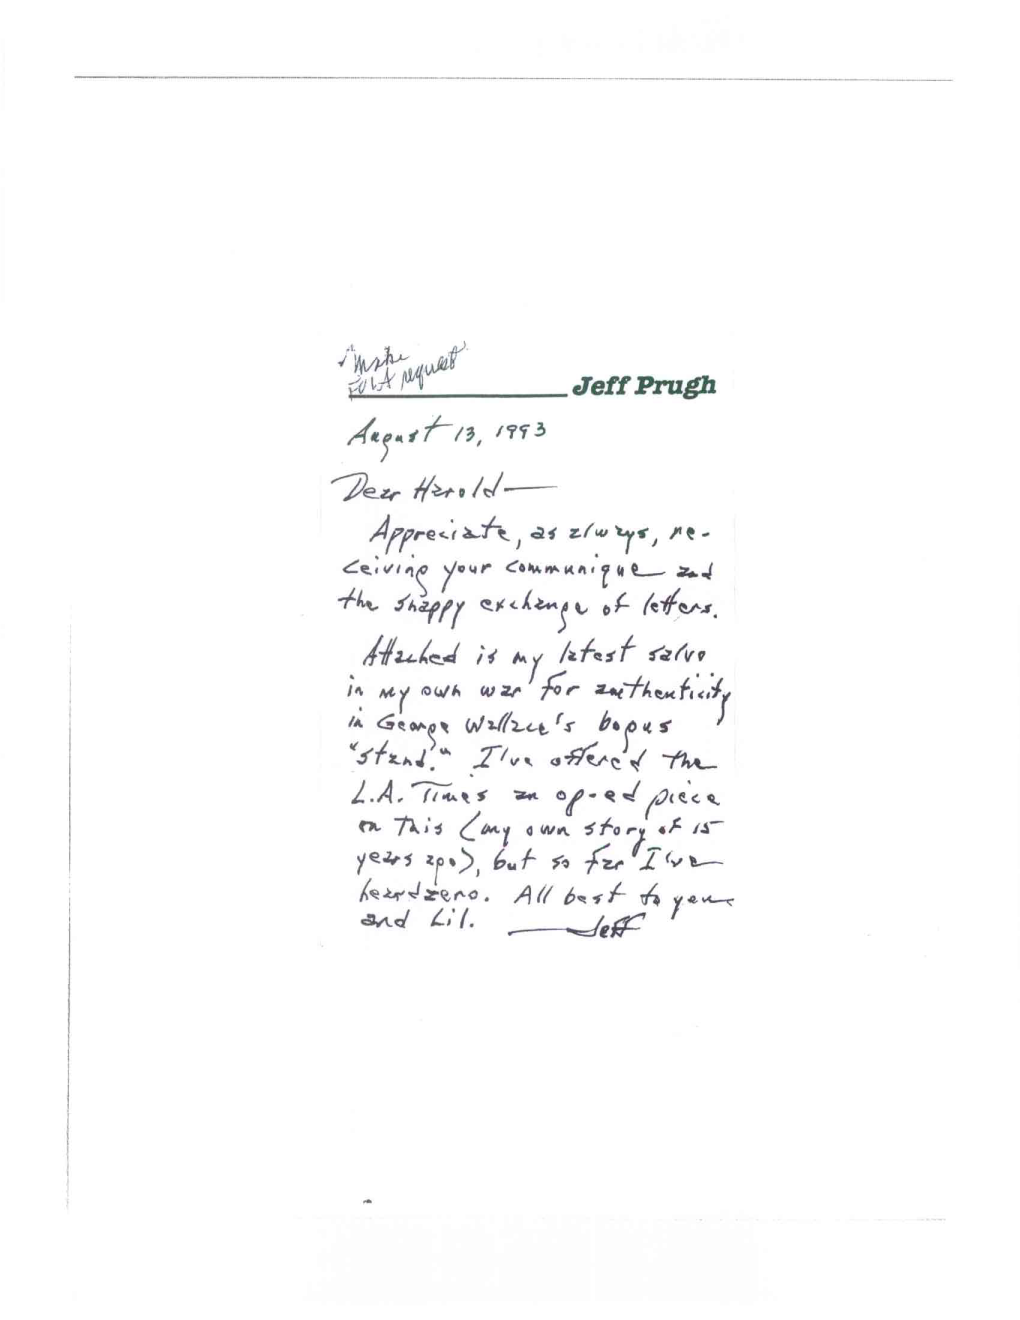 ✓ Make
FOIA request
Jeff Prugh
August 13, 1993
Dear Harold—
Appreciate, as always, re-
ceiving your communique and
the snappy exchange of letters.
Attached is my latest salvo
in my own war for authenticity
in George Wallace's bogus
"stand." I've offered the
L.A. Times an op-ed piece
on this (my own story of 15
years ago), but so far I've
heard zero. All best to you
and Lil. —Jeff